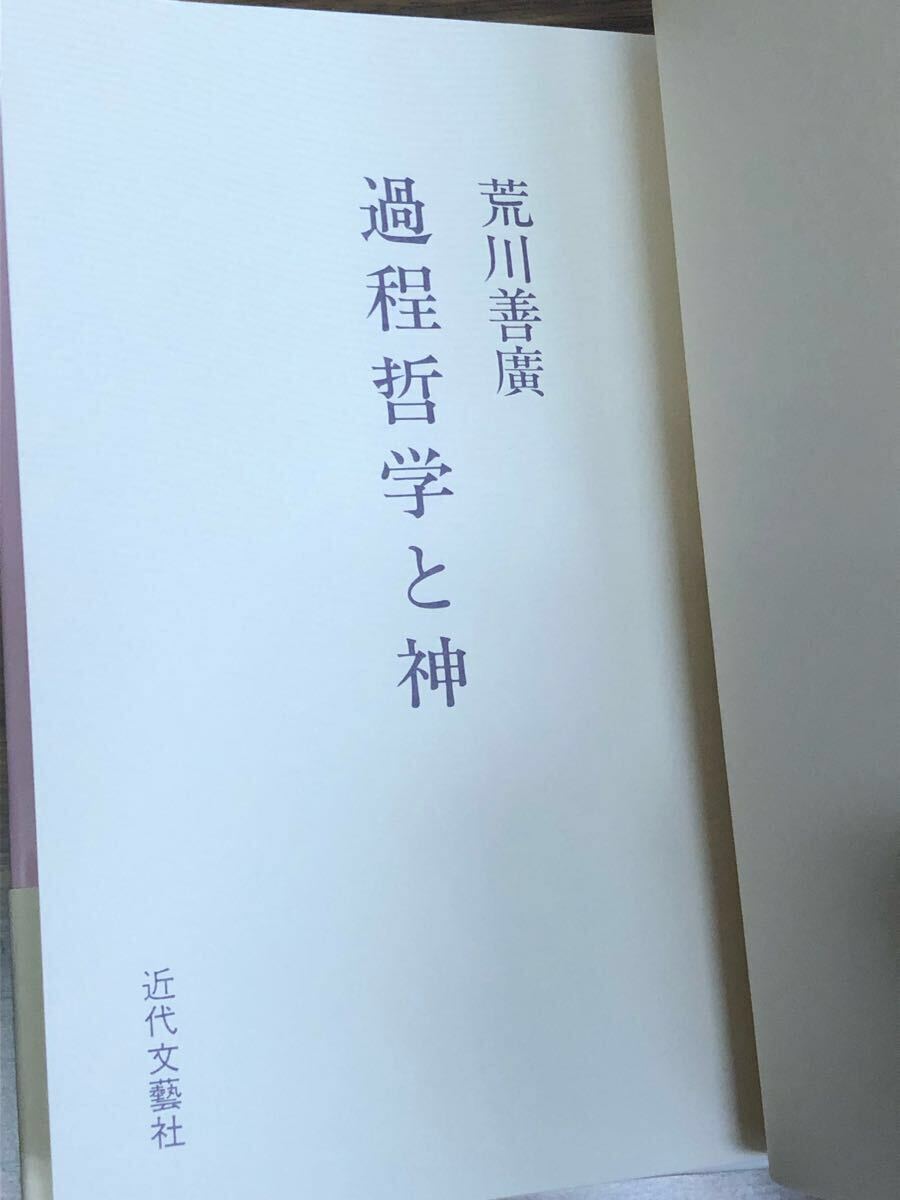 荒川善廣
過程哲学と神
近代文藝社